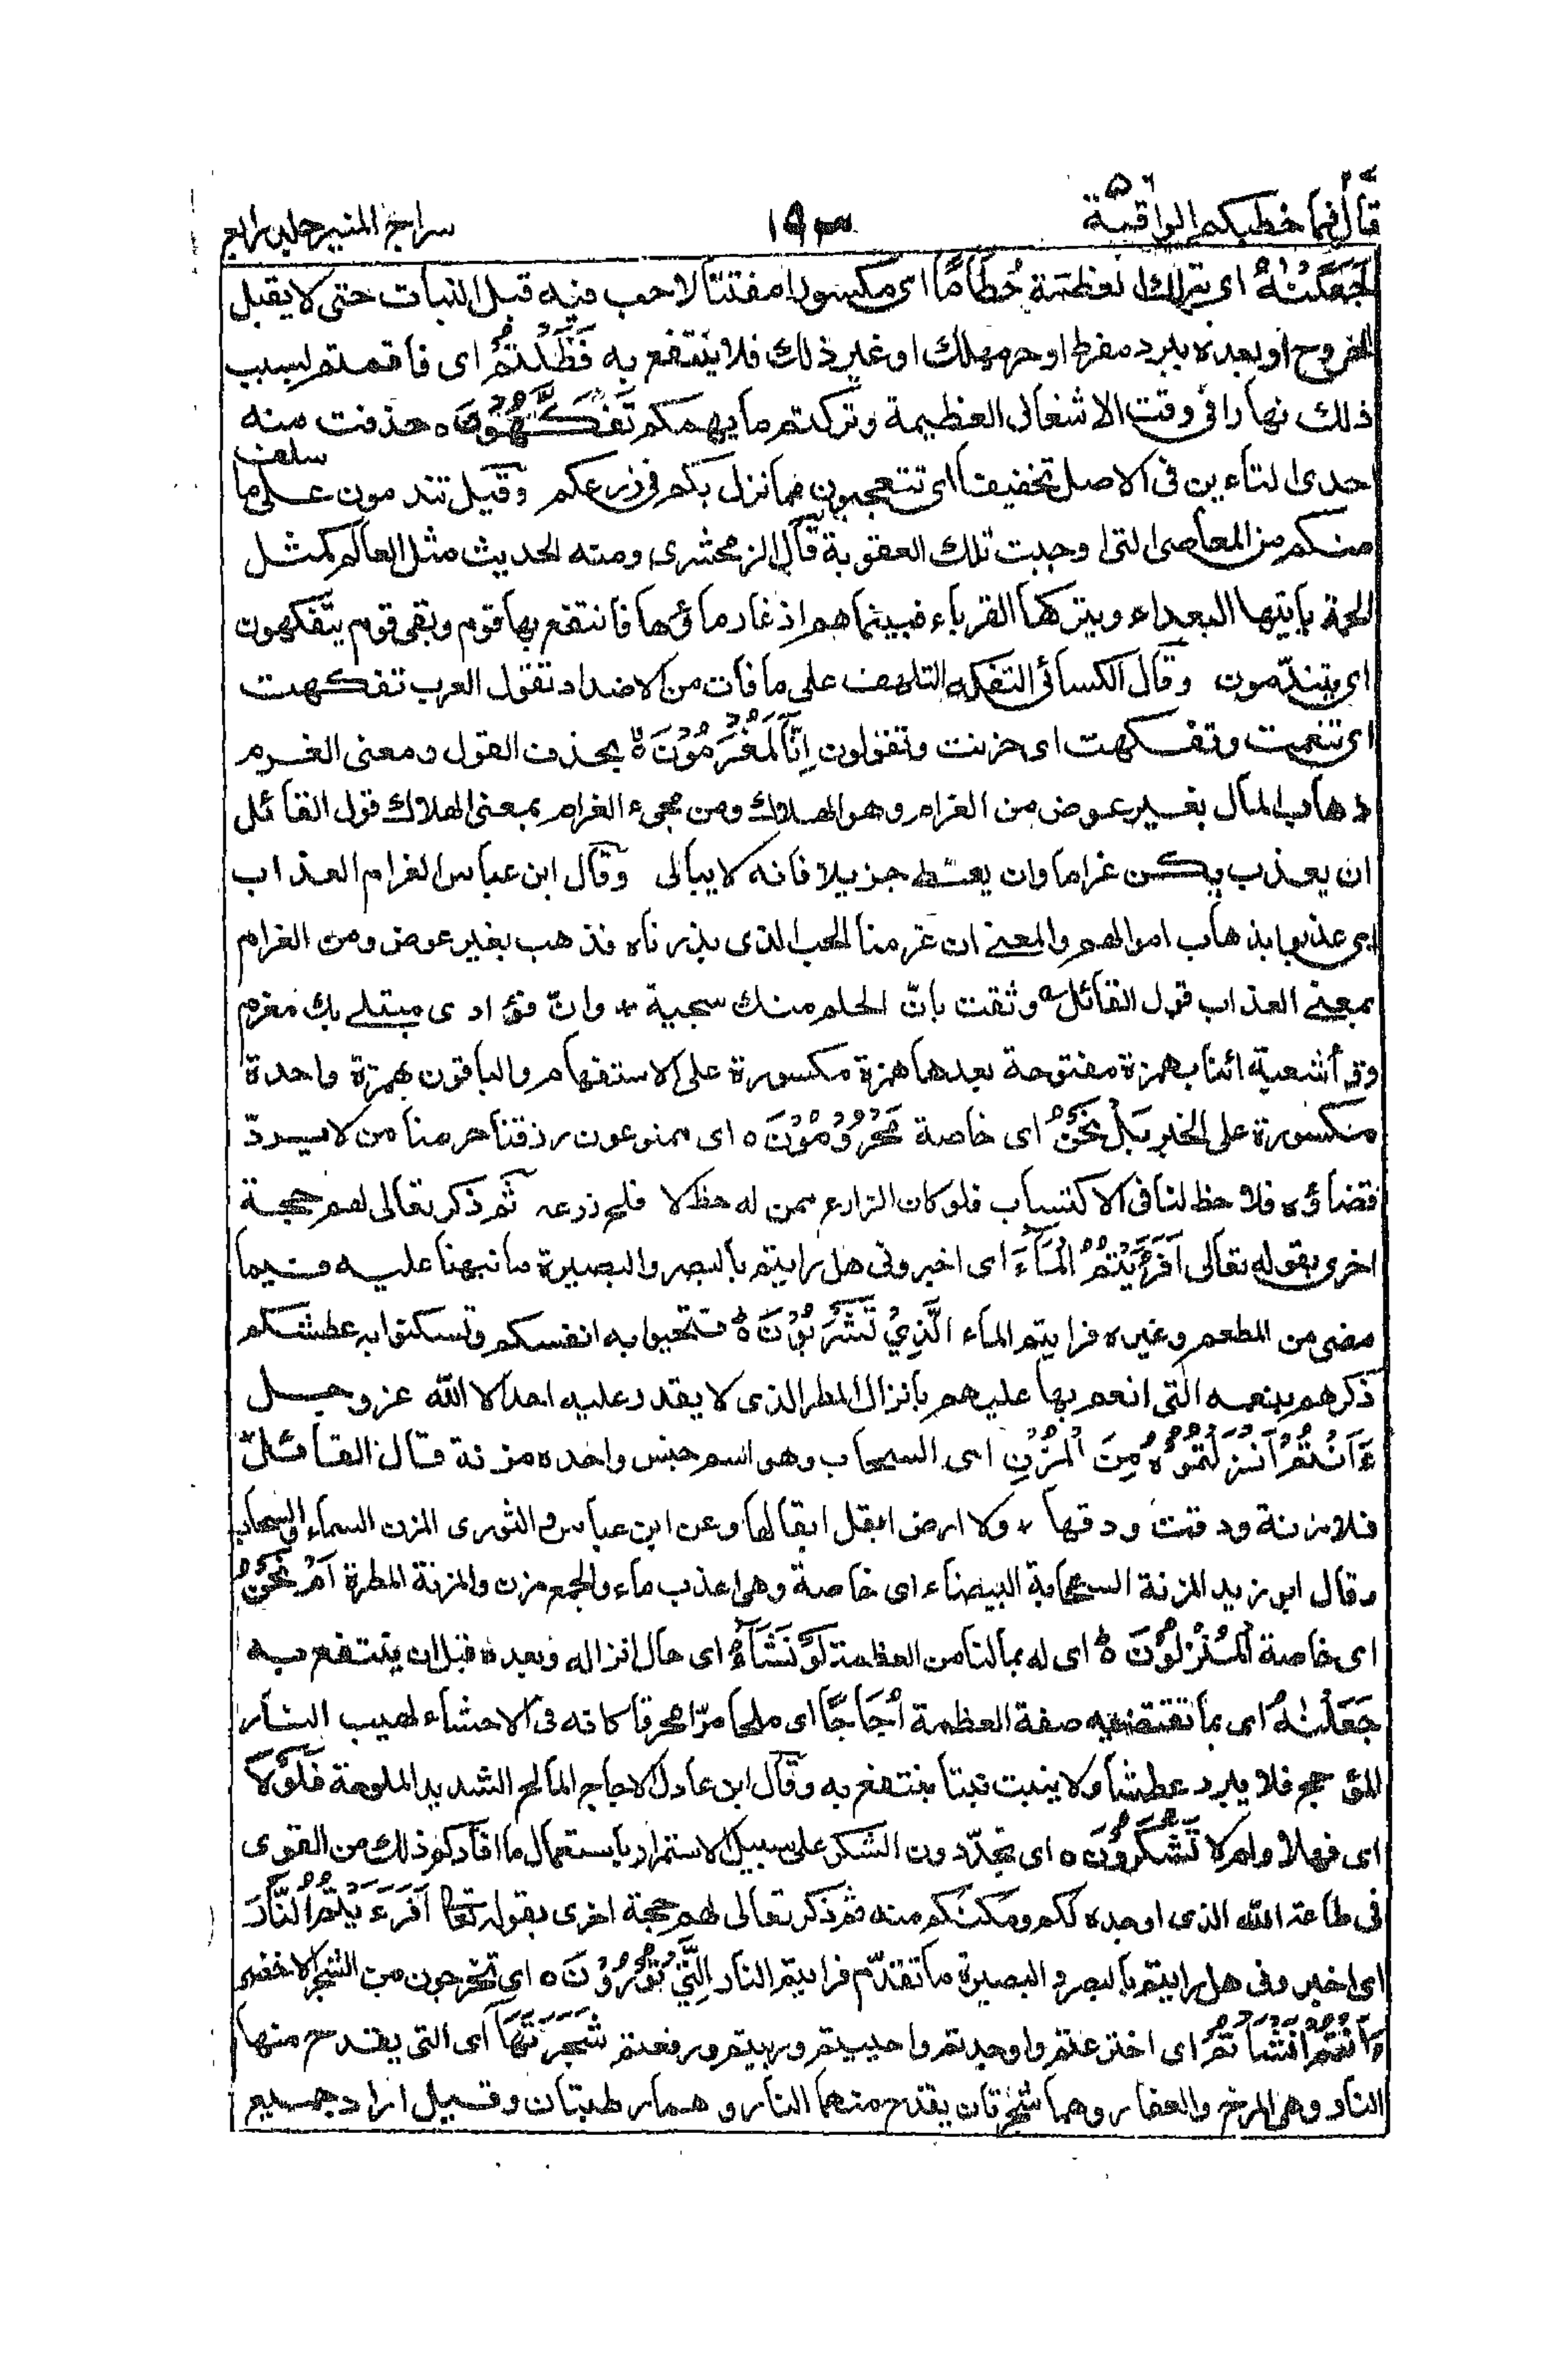 قال فما خطبكم الواقعة ١٩٣ سراج المنير جلد رابع
لَجَعَلْنٰهُ اى بتلك العظمة حُطَامًا اى مكسورا مفتتا لا حب فيه قبل النبات حتى لا يقبل
الخروج او بعده ببرد مفرط او حر مهلك او غير ذلك فلا ينتفع به فَظَلْتُمْ اى فاقمتم بسبب
ذلك نهارا فى وقت الاشغال العظيمة وتركتم ما يهمكم تَفَكَّهُوْنَ ه حذفت منه
احدى التاءين فى الاصل تخفيفا اى تتعجبون مما نزل بكم فى زرعكم وقيل تندمون على ما سلف
منكم من المعاصى التى اوجبت تلك العقوبة قال الزمخشرى ومنه الحديث مثل العالم كمثل
الحمة ياتيها البعداء ويتركها القرباء فبينما هم اذ غار ماؤها فانتفع بها قوم وبقى قوم يتفكهون
اى يتندّمون وقال الكسائى التفكه التلهف على ما فات من الاضداد تقول العرب تفكهت
اى تنعمت وتفكهت اى حزنت وتقولون اِنَّا لَمُغْرَمُوْنَ ه بحذف القول ومعنى الغرم
ذهاب المال بغير عوض من الغرام وهو الهلاك ومن مجىء الغرام بمعنى الهلاك قول القائل
ان يعذب يكن غراما وان يعط جزيلا فانه لا يبالى وقال ابن عباس الغرام العذاب
اى عذبوا بذهاب اموالهم والمعنى ان غرمنا الحب الذى بذرناه فذهب بغير عوض ومن الغرام
بمعنى العذاب قول القائل وثقت بانّ الحلم منك سجية * وانّ فؤادى مبتلى بك مغرم
وقرأ شعبة ائنا بهمزة مفتوحة بعدها همزة مكسورة على الاستفهام والباقون بهمزة واحدة
مكسورة على الخبر بَلْ نَحْنُ اى خاصة مَحْرُوْمُوْنَ ه اى ممنوعون رزقنا حرمنا من لا يردّ
قضاؤه فلا حظ لنا فى الاكتساب فلو كان الزارع ممن له حظ لا فلح زرعه ثم ذكر تعالى لهم حجة
اخرى بقوله تعالى اَفَرَءَيْتُمُ الْمَآءَ اى اخبرونى هل رايتم بالبصر والبصيرة ما نبهنا عليه فيما
مضى من المطعم وغيره فرايتم الماء الَّذِيْ تَشْرَبُوْنَ ه فتحيوا به انفسكم وتسكنوا به عطشكم
ذكرهم بنعمه التى انعم بها عليهم بانزال المطر الذى لا يقدر عليه احد الا الله عز وجل
ءَاَنْتُمْ اَنْزَلْتُمُوْهُ مِنَ الْمُزْنِ اى السحاب وهو اسم جنس واحده مزنة قال القائل
فلا مزنة ودقت ودقها * ولا ارض ابقل ابقالها وعن ابن عباس والثورى المزن السماء والسحاب
وقال ابن زيد المزنة السحابة البيضاء اى خاصة وهى اعذب ماء والجمع مزن والمزنة المطرة اَمْ نَحْنُ
اى خاصة الْمُنْزِلُوْنَ ه اى له بما لنا من العظمة لَوْ نَشَآءُ اى حال انزاله وبعده قبل ان ينتفع به
جَعَلْنٰهُ اى بما تقتضيه صفة العظمة اُجَاجًا اى ملحا مرّا محرقا كانه فى الاحشاء لهيب النار
المؤجج فلا يبرد عطشا ولا ينبت نبتا ينتفع به وقال ابن عادل الاجاج المالح الشديد الملوحة فَلَوْلَا
اى فهلا ولم لا تَشْكُرُوْنَ ه اى تجدّدون الشكر على سبيل الاستمرار باستعمال ما افادكم ذلك من القوى
فى طاعة الله الذى اوجده لكم ومكنكم منه ثم ذكر تعالى لهم حجة اخرى بقوله تعالى اَفَرَءَيْتُمُ النَّارَ
اى اخبرونى هل رايتم بالبصر والبصيرة ما تقدّم فرايتم النار الَّتِيْ تُوْرُوْنَ ه اى تخرجون من الشجر الاخضر
ءَاَنْتُمْ اَنْشَاْتُمْ اى اخترعتم واوجدتم واحييتم وربيتم ورفعتم شَجَرَتَهَا اى التى يقدح منها
النار وهى المرخ والعفار وهما شجرتان يقدح منهما النار وهما رطبتان وقيل اراد جميع